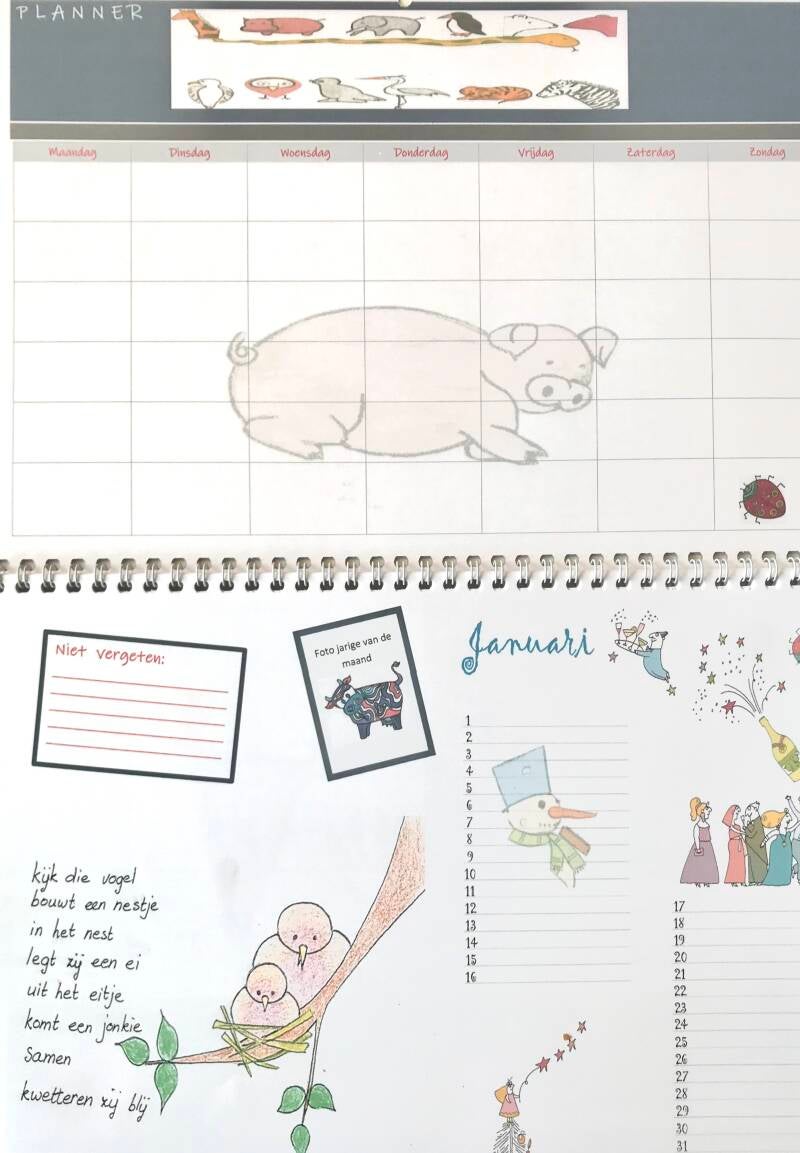 PLANNER
Maandag Dinsdag Woensdag Donderdag Vrijdag Zaterdag Zondag
Niet vergeten:
Foto jarige van de
maand
Januari
1
2
3
4
5
6
7
8
9
10
11
12
13
14
15
16
17
18
19
20
21
22
23
24
25
26
27
28
29
30
31
kijk die vogel
bouwt een nestje
in het nest
legt zij een ei
uit het eitje
komt een jonkie
samen
kwetteren zij blij